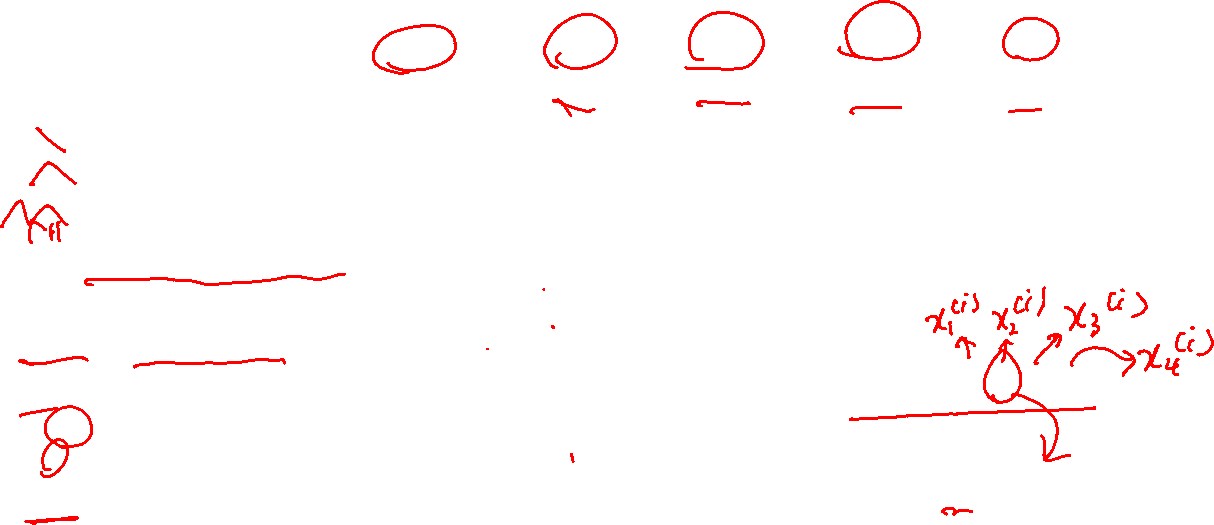 x₁⁽ⁱ⁾ x₂⁽ⁱ⁾ x₃⁽ⁱ⁾ x₄⁽ⁱ⁾